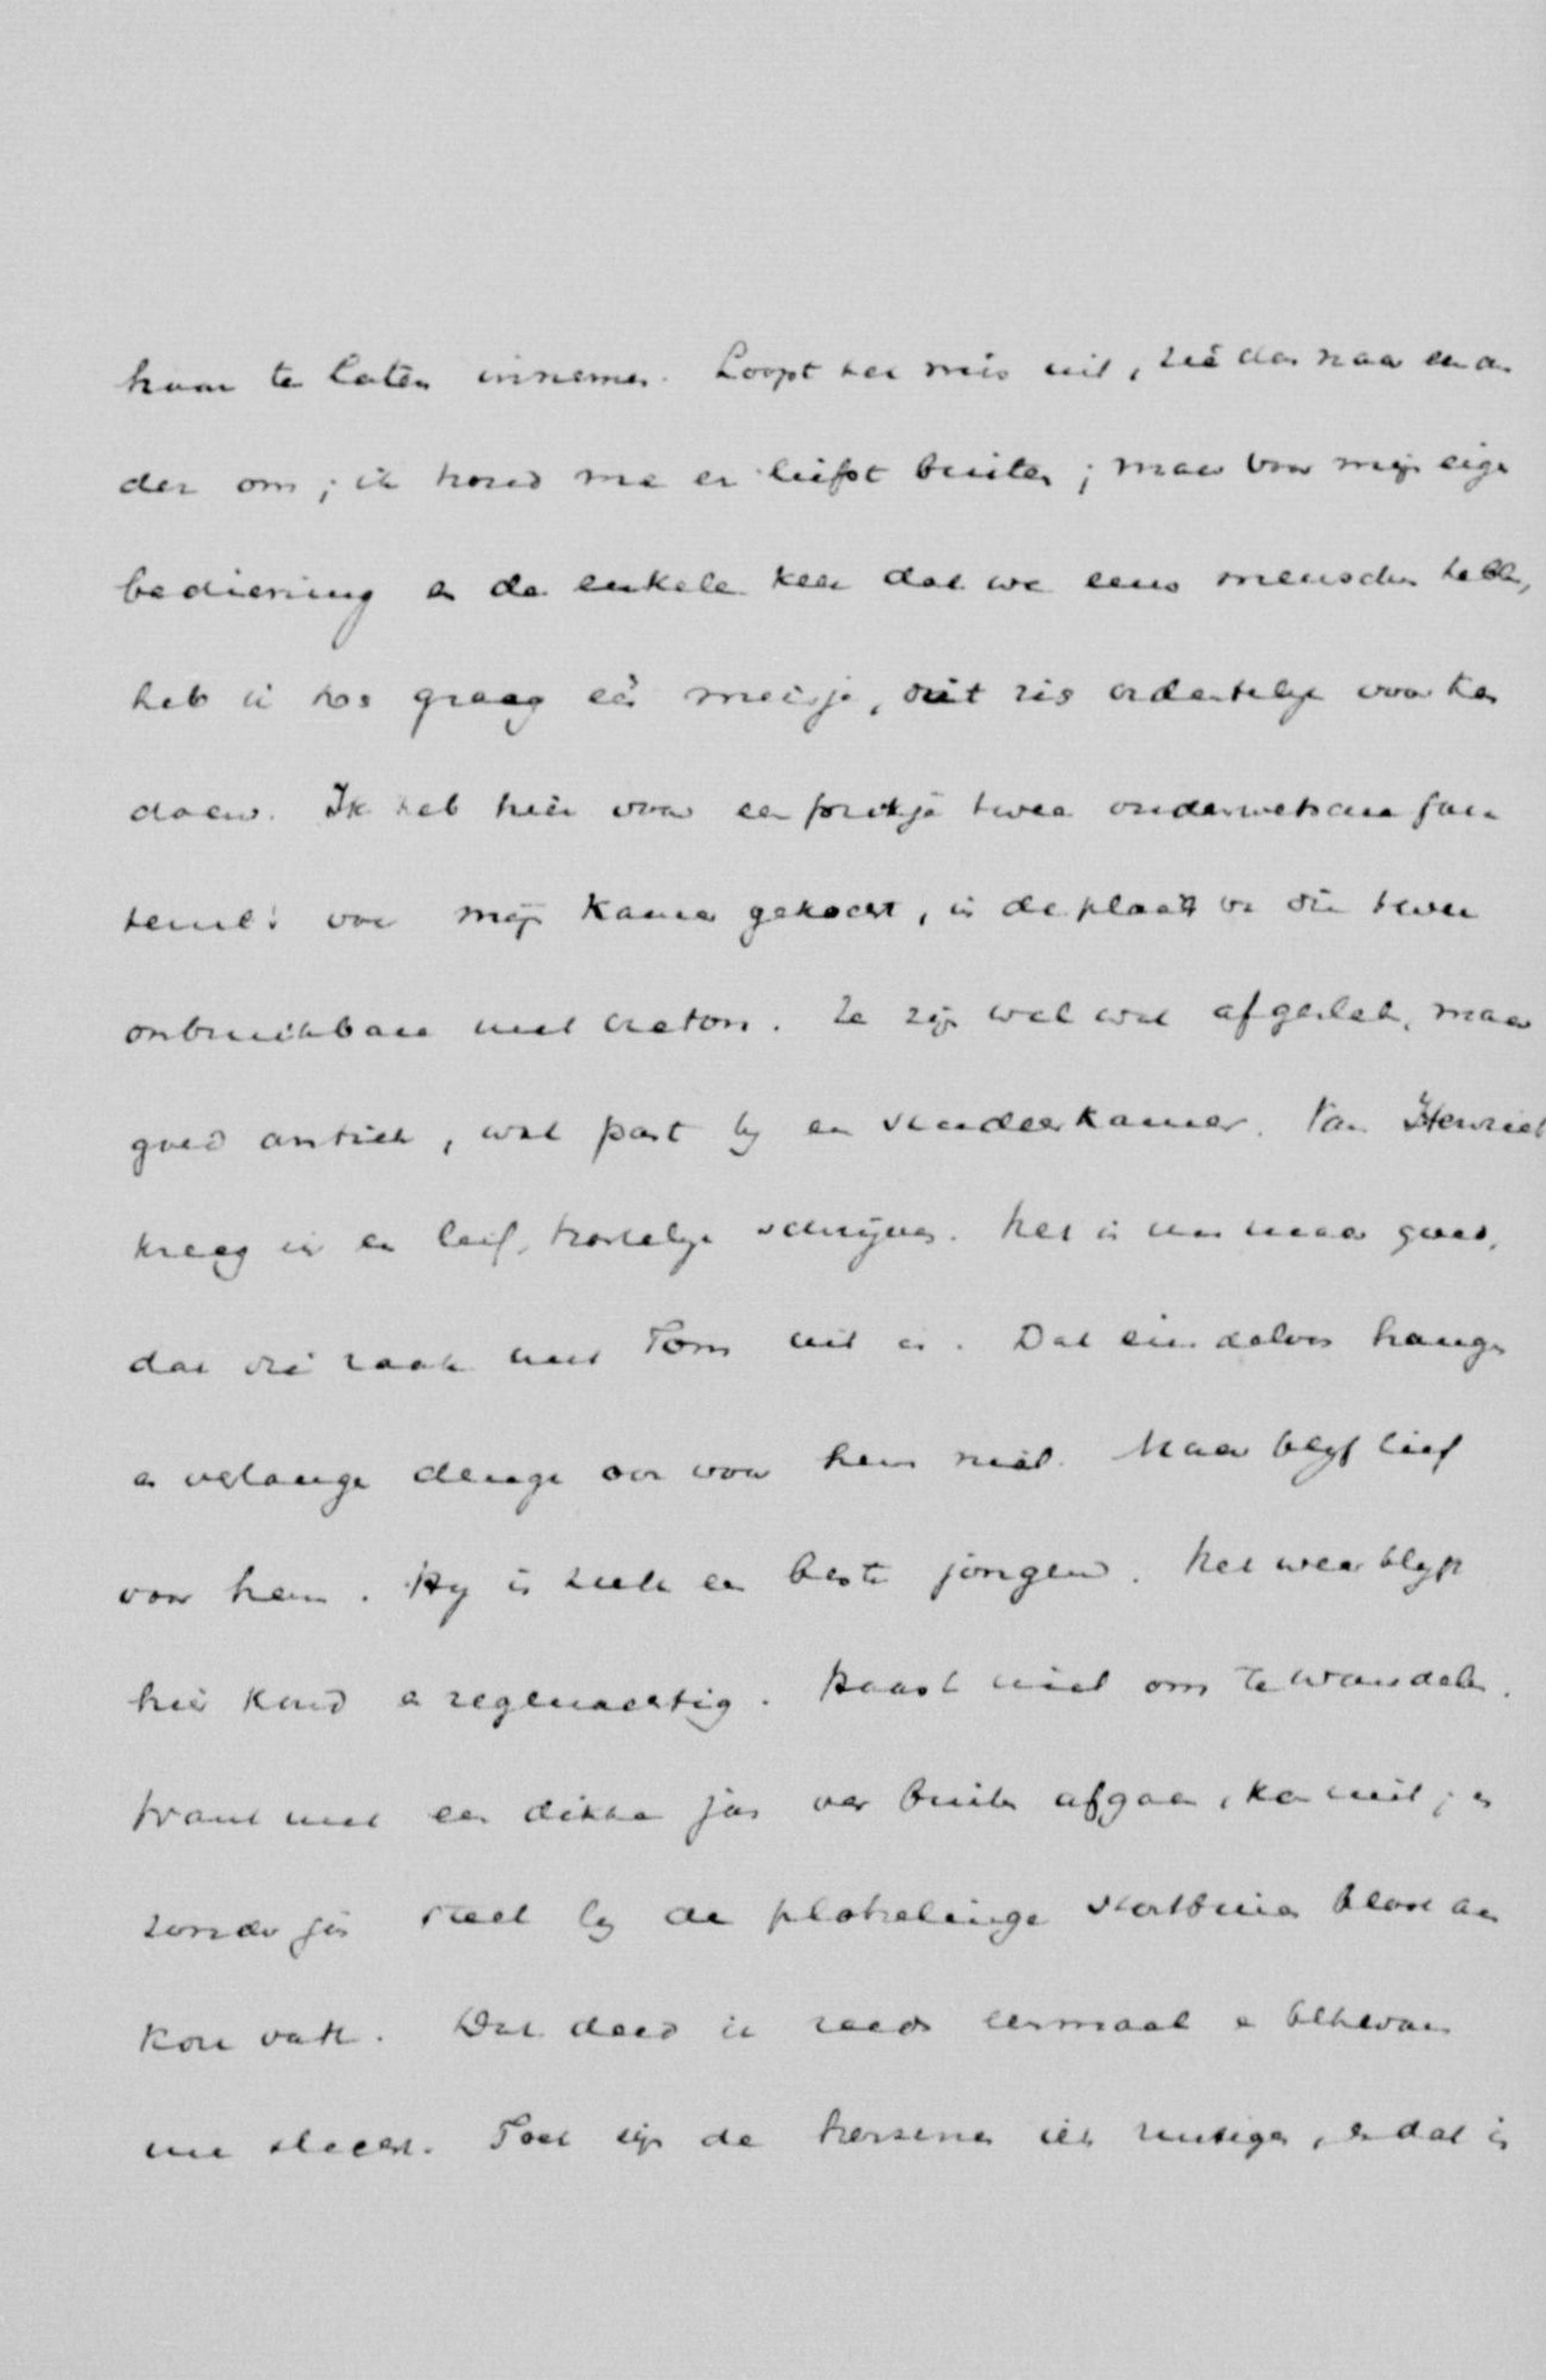 haar te laten innemen. Loopt het mis uit, zie dan naar een an
der om; ik houd me er liefst buiten; maar voor mijn eigen
bediening en de enkele keer dat we eens menschen hebben,
heb ik toch graag een meisje, dat zich ordentelijk voor kan
doen. Ik heb hier voor een prikje twee ouderwetsche fau
teuils voor mijn kamer gekocht, in de plaats van die twee
onbruikbare met creton. Ze zijn wel wat afgesleten, maar
goed antiek, wat past bij een studeerkamer. Van Henriet
kreeg ik een lief, hartelijk schrijven. Het is nu maar goed,
dat die zaak met Tom uit is. Dat eindeloos hangen
en verlangen deugt ook voor hem niet. Maar blijf lief
voor hem. Hij is zulk een beste jongen. Het weer blijft
hier koud en regenachtig. Haast niet om te wandelen.
Want met een dikke jas van buiten afgaan, kan niet, en
zonder jas staat bij de plotselinge stortbuien bloot aan
kou vatten. Dat deed ik reeds eenmaal en bekwam
me slecht. Toch zijn de hersenen iets rustiger, en dat is